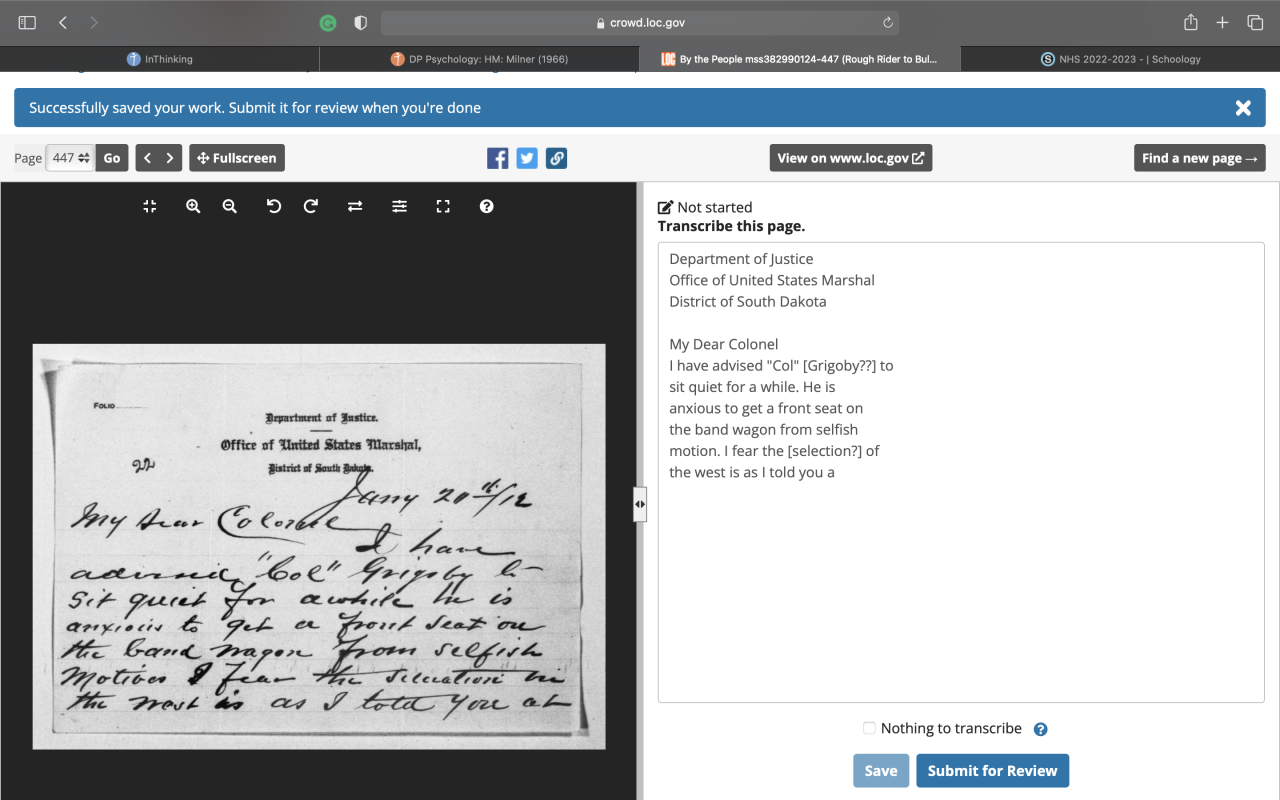 crowd.loc.gov
InThinking
DP Psychology: HM: Milner (1966)
LOC
By the People mss382990124-447 (Rough Rider to Bul...
S
NHS 2022-2023 - | Schoology
Successfully saved your work. Submit it for review when you're done
Page
447
Go
Fullscreen
View on www.loc.gov
Find a new page →
Folio
Department of Justice.
Office of United States Marshal,
District of South Dakota.
22
Jany 20th/12
My Dear Colonel
I have
advised "Col" Grigsby to
sit quiet for awhile he is
anxious to get a front seat on
the band wagon from selfish
motives I fear the situation in
the west is as I told you at
Not started
Transcribe this page.
Department of Justice
Office of United States Marshal
District of South Dakota
My Dear Colonel
I have advised "Col" [Grigoby??] to
sit quiet for a while. He is
anxious to get a front seat on
the band wagon from selfish
motion. I fear the [selection?] of
the west is as I told you a
Nothing to transcribe
Save
Submit for Review